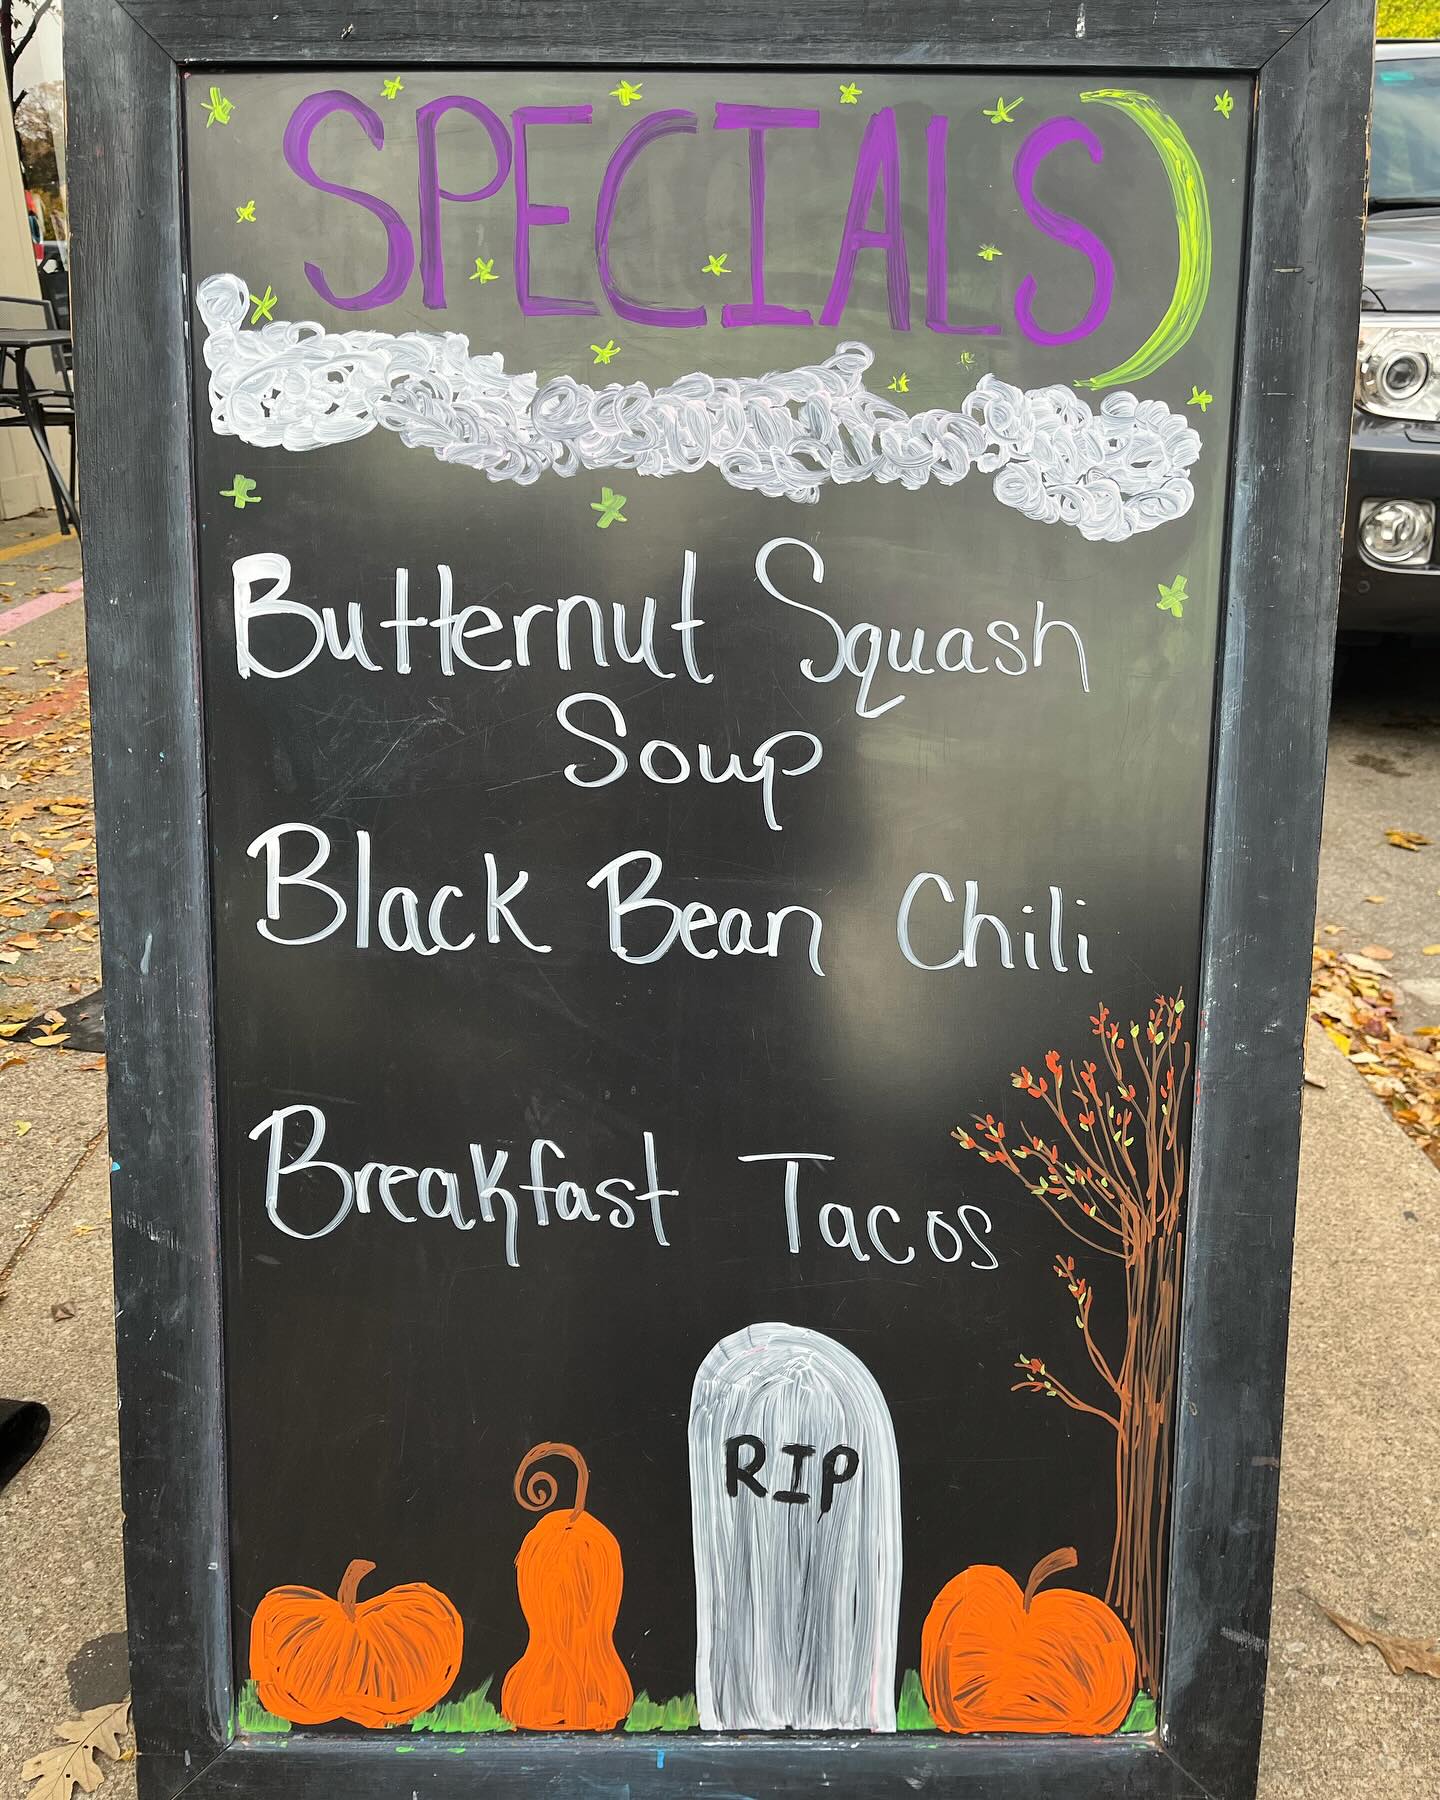 SPECIALS
Butternut Squash
Soup
Black Bean Chili
Breakfast Tacos
RIP